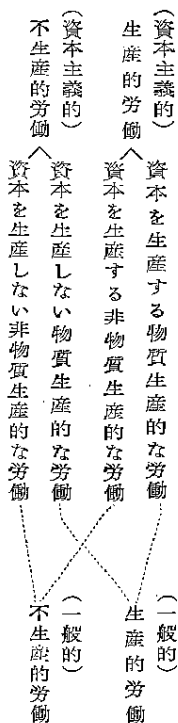 （資本主義的）
生産的労働
資本を生産する物質生産的な労働
資本を生産する非物質生産的な労働
（資本主義的）
不生産的労働
資本を生産しない物質生産的な労働
資本を生産しない非物質生産的な労働
（一般的）
生産的労働
（一般的）
不生産的労働